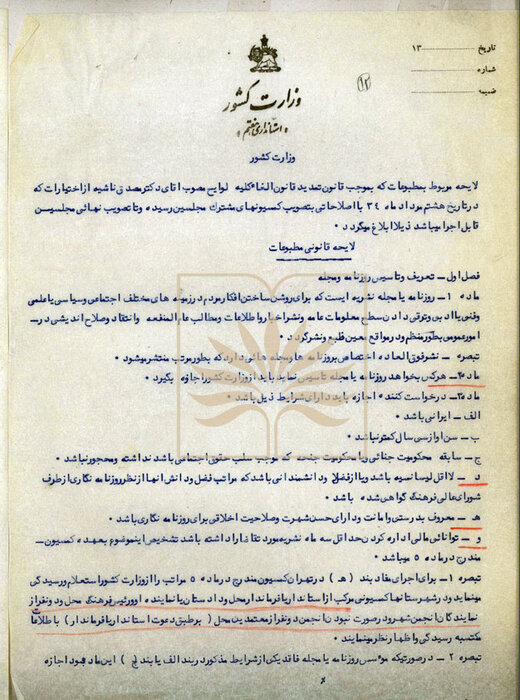 تاریخ ۱۳
شماره
ضمیمه
۹۲
وزارت کشور
«استانداری هفتم»
وزارت کشور
لایحه مربوط بمطبوعات که بموجب قانون تمدید قانون الغاء کلیه لوایح مصوب آقای دکتر مصدق ناشیه از اختیارات که
در تاریخ هشتم مرداد ماه ۳۴ با اصلاحاتی بتصویب کمسیونهای مشترک مجلسین رسیده و تا تصویب نهائی مجلسین
قابل اجرا میباشد ذیلا ابلاغ میگردد.
لایحه قانونی مطبوعات
فصل اول - تعریف و تاسیس روزنامه و مجله
ماده ۱ - روزنامه یا مجله نشریه ایست که برای روشن ساختن افکار مردم در زمینه های مختلف اجتماعی و سیاسی یا علمی
و فنی یا ادبی و ترقی دادن سطح معلومات عامه و نشر اخبار و اطلاعات و مطالب عام المنفعه و انتقاد و صلاح اندیشی در
امور عمومی بطور منظم و در مواقع معین طبع و نشر گردد.
تبصره - نشر فوق العاده اختصاص بروزنامه ها و مجله هائی دارد که بطور مرتب منتشر میشود
ماده ۲- هرکس بخواهد روزنامه یا مجله تاسیس نماید باید از وزارت کشور اجازه بگیرد.
ماده ۳- درخواست کننده اجازه باید دارای شرایط ذیل باشد.
الف - ایرانی باشد.
ب - سن او از سی سال کمتر نباشد.
ج - سابقه محکومیت جنائی و یا محکومیت جنحه که موجب سلب حقوق اجتماعی باشد نداشته و محجور نباشد.
د - لااقل لیسانسیه باشد و یا از فضلا و دانشمندانی باشد که مراتب فضل و دانش آنها از نظر روزنامه نگاری از طرف
شورای عالی فرهنگ گواهی شده باشد.
هـ - معروف بدرستی و امانت و دارای حسن شهرت و صلاحیت اخلاقی برای روزنامه نگاری باشد.
و - توانائی مالی اداره کردن حداقل سه ماه نشریه مورد تقاضا را داشته باشد تشخیص این موضوع بعهده کمسیون
مندرج در ماده ۵ میباشد
تبصره ۱ - برای اجرای مفاد بند (هـ) در تهران کمسیون مندرج در ماده ۵ مراتب را از وزارت کشور استعلام و رسیدگی
مینماید و در شهرستانها کمسیونی مرکب از استاندار یا فرماندار محل و دادستان یا نماینده او و رئیس فرهنگ محل و دو نفر از
نمایندگان انجمن شهر و در صورت نبودن انجمن دو نفر از معتمدین محل (بر طبق دعوت استاندار یا فرماندار) با اطلاعات
مکتسبه رسیدگی و اظهار نظر مینمایند.
تبصره ۲ - در صورتیکه موسس روزنامه یا مجله فاقد یکی از شرایط مذکور در بند الف یا بند (ج) این ماده بود اجازه